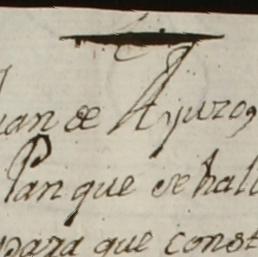 uan de Ayuzo
Pan que se hal
para que const